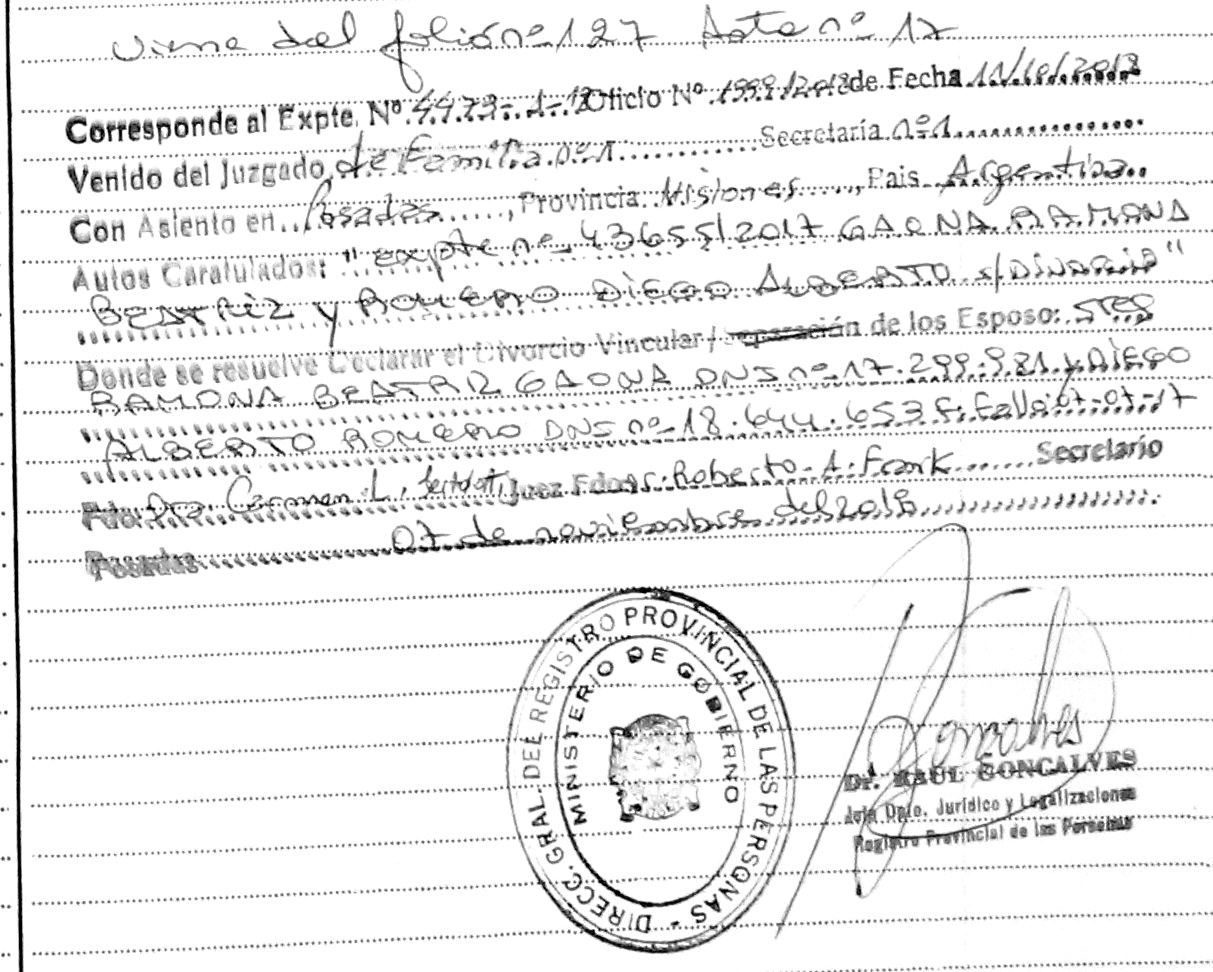 Viene del folio nº 127 Acta nº 17
Corresponde al Expte. Nº 4473-1-18 Oficio Nº 1999/2018 de Fecha 11/10/2018
Venido del Juzgado de Familia nº1 Secretaría nº1
Con Asiento en Posadas, Provincia: Misiones, Pais Argentina
Autos Caratulados: "expte nº 43655/2017 GAONA RAMONA
BEATRIZ y ROMERO DIEGO ALBERTO s/DIVORCIO"
Donde se resuelve Declarar el Divorcio Vincular/ separación de los Esposo: Stes
RAMONA BEATRIZ GAONA DNI nº 17.299.981 y DIEGO
ALBERTO ROMERO DNI nº 18.644.653 F. Fallo 07-07-17
Fdo: Dra. Carmen L. Juez Fdo: Roberto A. Frank Secretario
Posadas 07 de noviembre del 2018
DIRECC. GRAL. DEL REGISTRO PROVINCIAL DE LAS PERSONAS -
MINISTERIO DE GOBIERNO
Goncalves
Dr. RAÚL GONCALVES
Jefe Dpto. Jurídico y Legalizaciones
Registro Provincial de las Personas